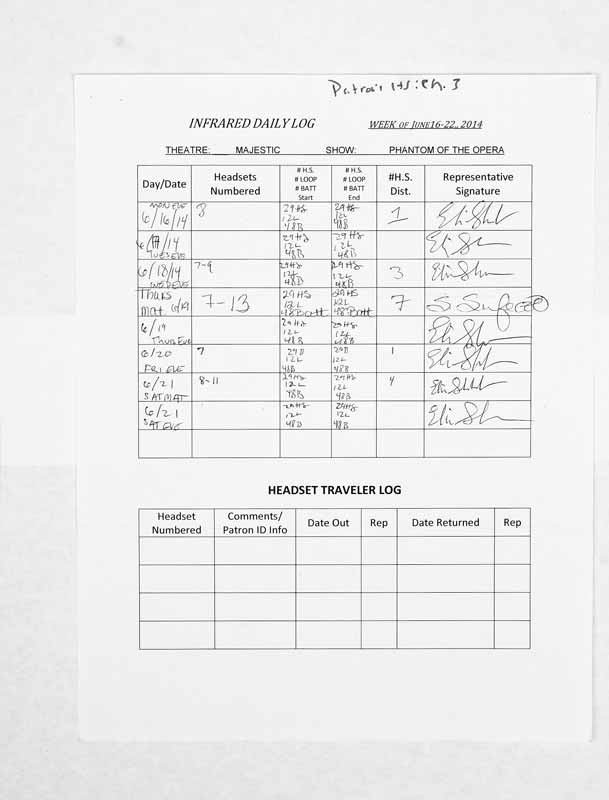 Ch. 3
INFRARED DAILY LOG WEEK OF JUNE 16-22, 2014
THEATRE: MAJESTIC SHOW: PHANTOM OF THE OPERA
Day/Date
Headsets
Numbered
# H.S.
# LOOP
# BATT
Start
# H.S.
# LOOP
# BATT
End
#H.S.
Dist.
Representative
Signature
MON EVE
6/16/14
8
29HS
12L
48B
29HS
12L
48B
1
6/17/14
TUES EVE
29HS
12L
48B
29HS
12L
48B
6/18/14
WED EVE
7-9
29HS
12L
48B
29HS
12L
48B
3
Thurs
mat 6/19
7-13
29HS
12L
48Batt
29HS
12L
48Batt
7
6/19
Thurs Eve
29HS
12L
48B
29HS
12L
48B
6/20
FRI EVE
7
12L
48B
12L
48B
1
6/21
SAT MAT
8-11
29HS
12L
48B
29HS
12L
48B
4
6/21
SAT EVE
29HS
12L
48B
29HS
12L
48B
HEADSET TRAVELER LOG
Headset
Numbered
Comments/
Patron ID Info
Date Out
Rep
Date Returned
Rep